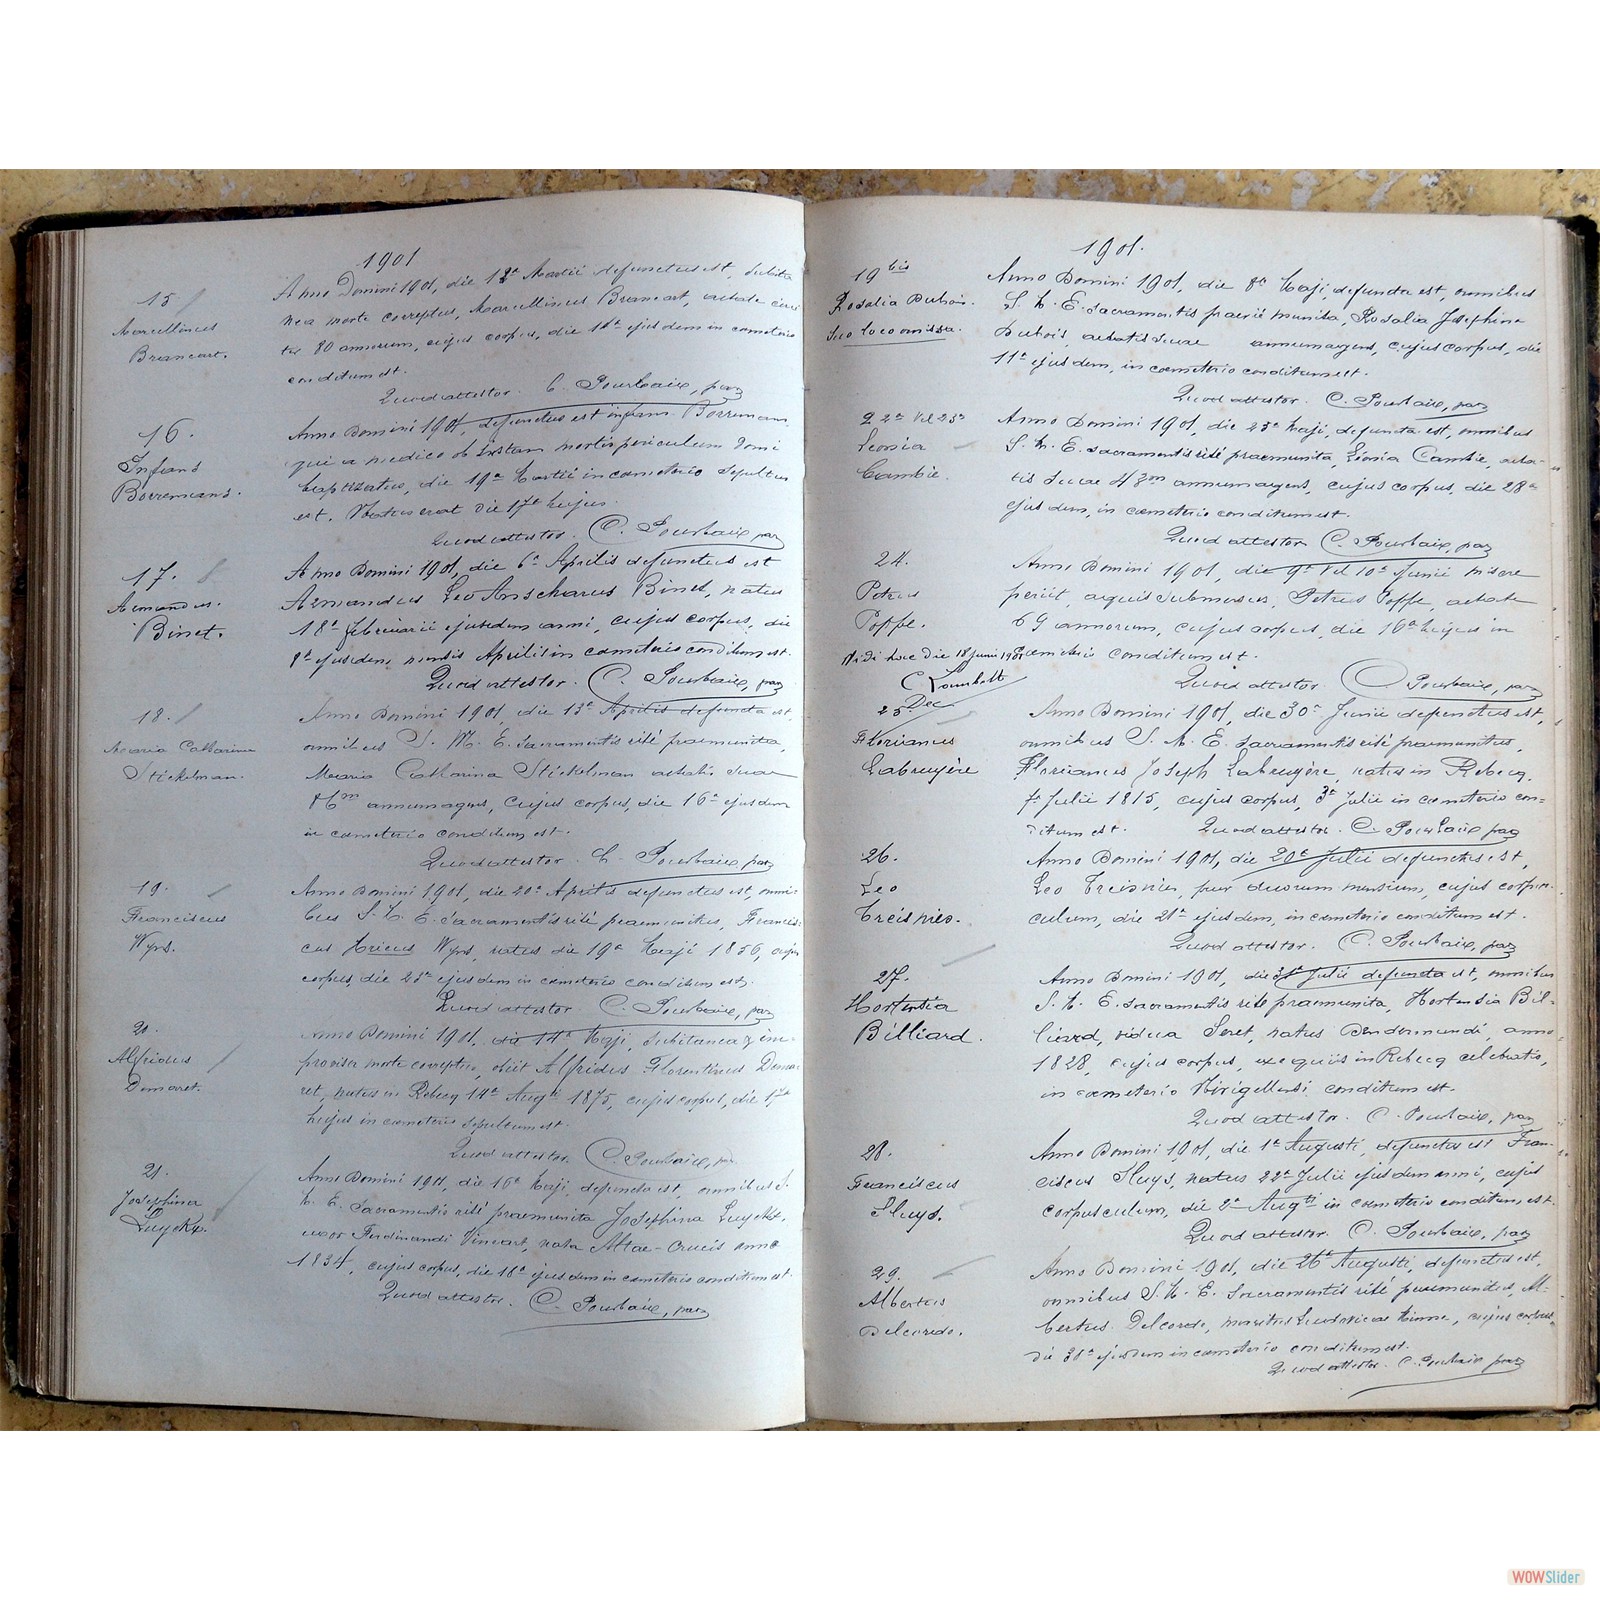 1901
15
Marcellinus
Brancart.
Anno Domini 1901, die 12a Martii defunctus est, subita
nea morte correptus, Marcellinus Brancart, aetate circi
ter 80 annorum, cujus corpus, die 14a ejusdem in cemeterio
conditum est.
Quod attestor. C. Pourbaix, par
16.
Infans
Borremans.
Anno Domini 1901 defunctus est infans Borremans
qui a medico ob instans mortis periculum domi
baptizatus, die 19a Martii in cemeterio sepultus
est. Natus erat die 17a hujus.
Quod attestor. C. Pourbaix, par
17. 8
Armandus.
Binet.
Anno Domini 1901, die 6a Aprilis defunctus est
Armandus Leo Anscharus Binet, natus
18a februarii ejusdem anni, cujus corpus, die
8a ejusdem, mensis Aprilis in cemeterio conditum est.
Quod attestor. C. Pourbaix, par
18.
Maria Catharina
Stickelman.
Anno Domini 1901, die 13a Aprilis defuncta est,
omnibus S. M. E. Sacramentis rité praemunita,
Maria Catharina Stickelman aetatis suae
86m annum agens, cujus corpus, die 16a ejusdem
in cemeterio conditum est.
Quod attestor. C. Pourbaix, par
19.
Franciscus
Wyns.
Anno Domini 1901, die 20a Aprilis defunctus est, omni-
bus S. M. E. Sacramentis rité praemunitus, Francis-
cus Wyns, natus die 19a Maji 1856, cujus
corpus, die 23a ejusdem in cemeterio conditum est.
Quod attestor C. Pourbaix, par
20.
Alfridus
Demaret.
Anno Domini 1901, die 14a Maji, subitanea & im-
provisa morte correptus, obiit Alfridus Florentinus Dema
ret, natus in Rebecq 14a Augti 1875, cujus corpus, die 17a
hujus in cemeterio sepultum est.
Quod attestor. C. Pourbaix, par.
21.
Josephina
Luyckx.
Anno Domini 1901, die 16a Maji, defuncta est, omnibus S.
M. E. Sacramentis rité praemunita Josephina Luyckx,
uxor Ferdinandi Vincart, nata Altae-Crucis anno
1834, cujus corpus, die 18a ejusdem in cemeterio conditum est.
Quod attestor. C. Pourbaix, par
1901.
19 bis
Rosalia Dubois.
suo loco omissa.
Anno Domini 1901, die 8a Maji, defuncta est, omnibus
S. M. E. Sacramentis praemunita, Rosalia Josephina
Dubois, aetatis suae annum agens, cujus corpus, die
11a ejusdem, in cemeterio conditum est.
Quod attestor. C. Pourbaix, par
22a vel 23a
Leonia
Cambie.
Anno Domini 1901, die 25a Maji, defuncta est, omnibus
S. M. E. Sacramentis rité praemunita, Léonia Cambie, aeta-
tis suae 43m annum agens, cujus corpus, die 28a
ejusdem, in cemeterio conditum est.
Quod attestor C. Pourbaix, par
24.
Petrus
Poppe.
Anno Domini 1901, die 9a vel 10a Junii misere
periit, aquis submersus, Petrus Poppe, aetate
69 annorum, cujus corpus, die 16a hujus in
cemeterio conditum est.
Quod attestor C. Pourbaix, par
Vidi hac die 18 Junii 1901
Dec
25.
Florianus
Labruyère
Anno Domini 1901, die 30a Junii defunctus est,
omnibus S. M. E. Sacramentis rité praemunitus,
Florianus Joseph Labruyère, natus in Rebecq
7a Julii 1815, cujus corpus, 3a Julii in cemeterio con=
ditum est. Quod attestor. C. Pourbaix par
26.
Leo
Treispries.
Anno Domini 1901, die 20a Julii defunctus est,
Leo puer duorum mensium, cujus corpus-
culum, die 21a ejusdem, in cemeterio conditum est.
Quod attestor. C. Pourbaix, par
27.
Hortensia
Billiard.
Anno Domini 1901, die 31a Julii defuncta est, omnibus
S. M. E. Sacramentis rité praemunita, Hortensia Bil-
liard, vidua Seret, natus Dendermundi, anno
1828, cujus corpus, exequiis in Rebecq celebratis,
in cemeterio conditum est.
Quod attestor. C. Pourbaix, par
28.
Franciscus
Sluys.
Anno Domini 1901, die 1a Augusti, defunctus est Fran-
ciscus Sluys, natus 22a Julii ejusdem anni, cujus
corpusculum, die 2a Augti in cemeterio conditum est.
Quod attestor. C. Pourbaix, par
29.
Albertus
Delcorde.
Anno Domini 1901, die 26a Augusti, defunctus est,
omnibus S. M. E. Sacramentis rité praemunitus, Al-
bertus Delcorde, maritus Ludovicae cujus corpus,
die 30a ejusdem in cemeterio conditum est.
Quod attestor. C. Pourbaix par
WOWSlider